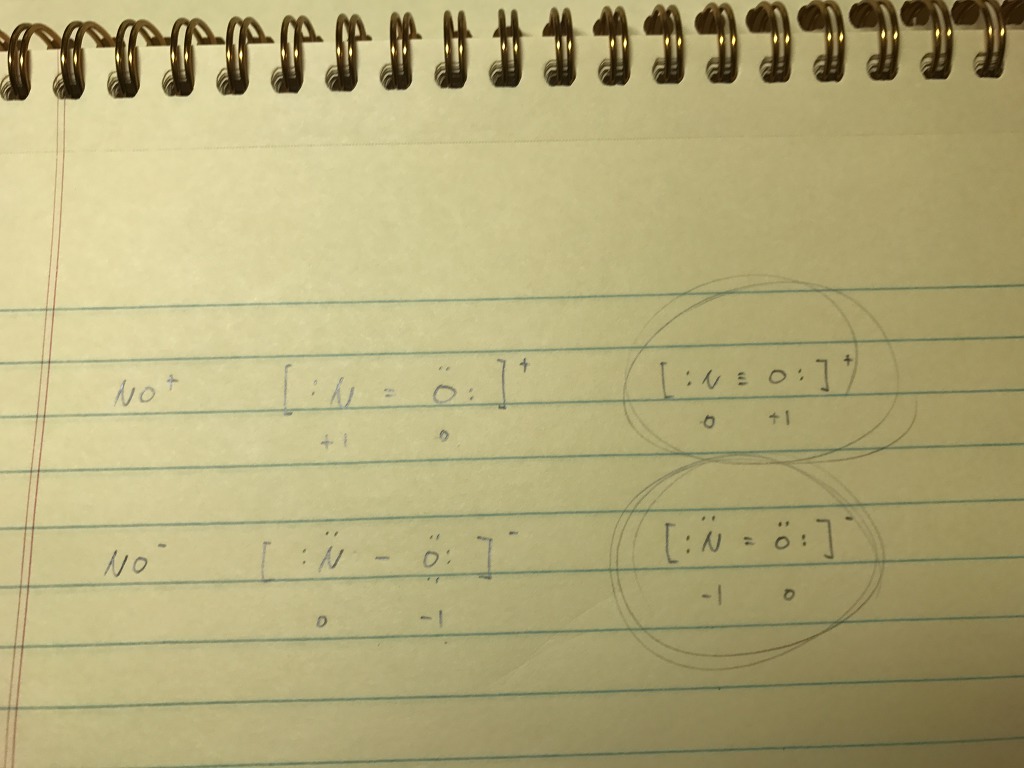 NO⁺ [ :N = Ö: ]⁺ [ :N ≡ O: ]⁺
+1 0 0 +1
NO⁻ [ :N̈ − Ö̤: ]⁻ [ :N̈ = Ö: ]⁻
0 -1 -1 0